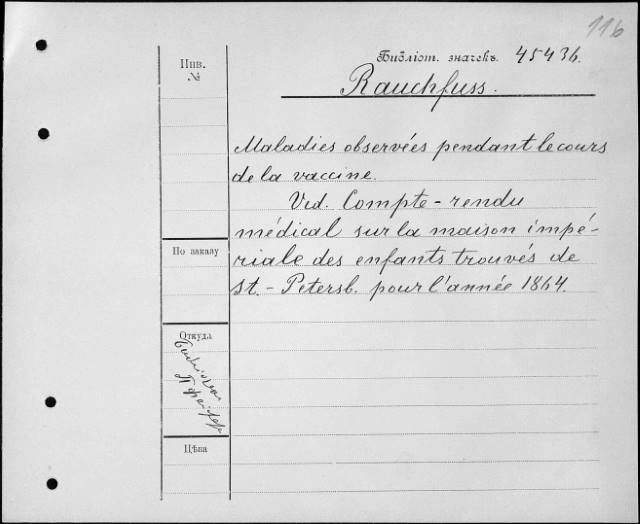 116
Библіот. значекъ. 45436.
Rauchfuss.
Инв.
№
Maladies observées pendant le cours
de la vaccine.
Vid. Compte-rendu
médical sur la maison impé-
riale des enfants trouvés de
St.-Petersb. pour l'année 1864.
По заказу
Откуда
Цѣна